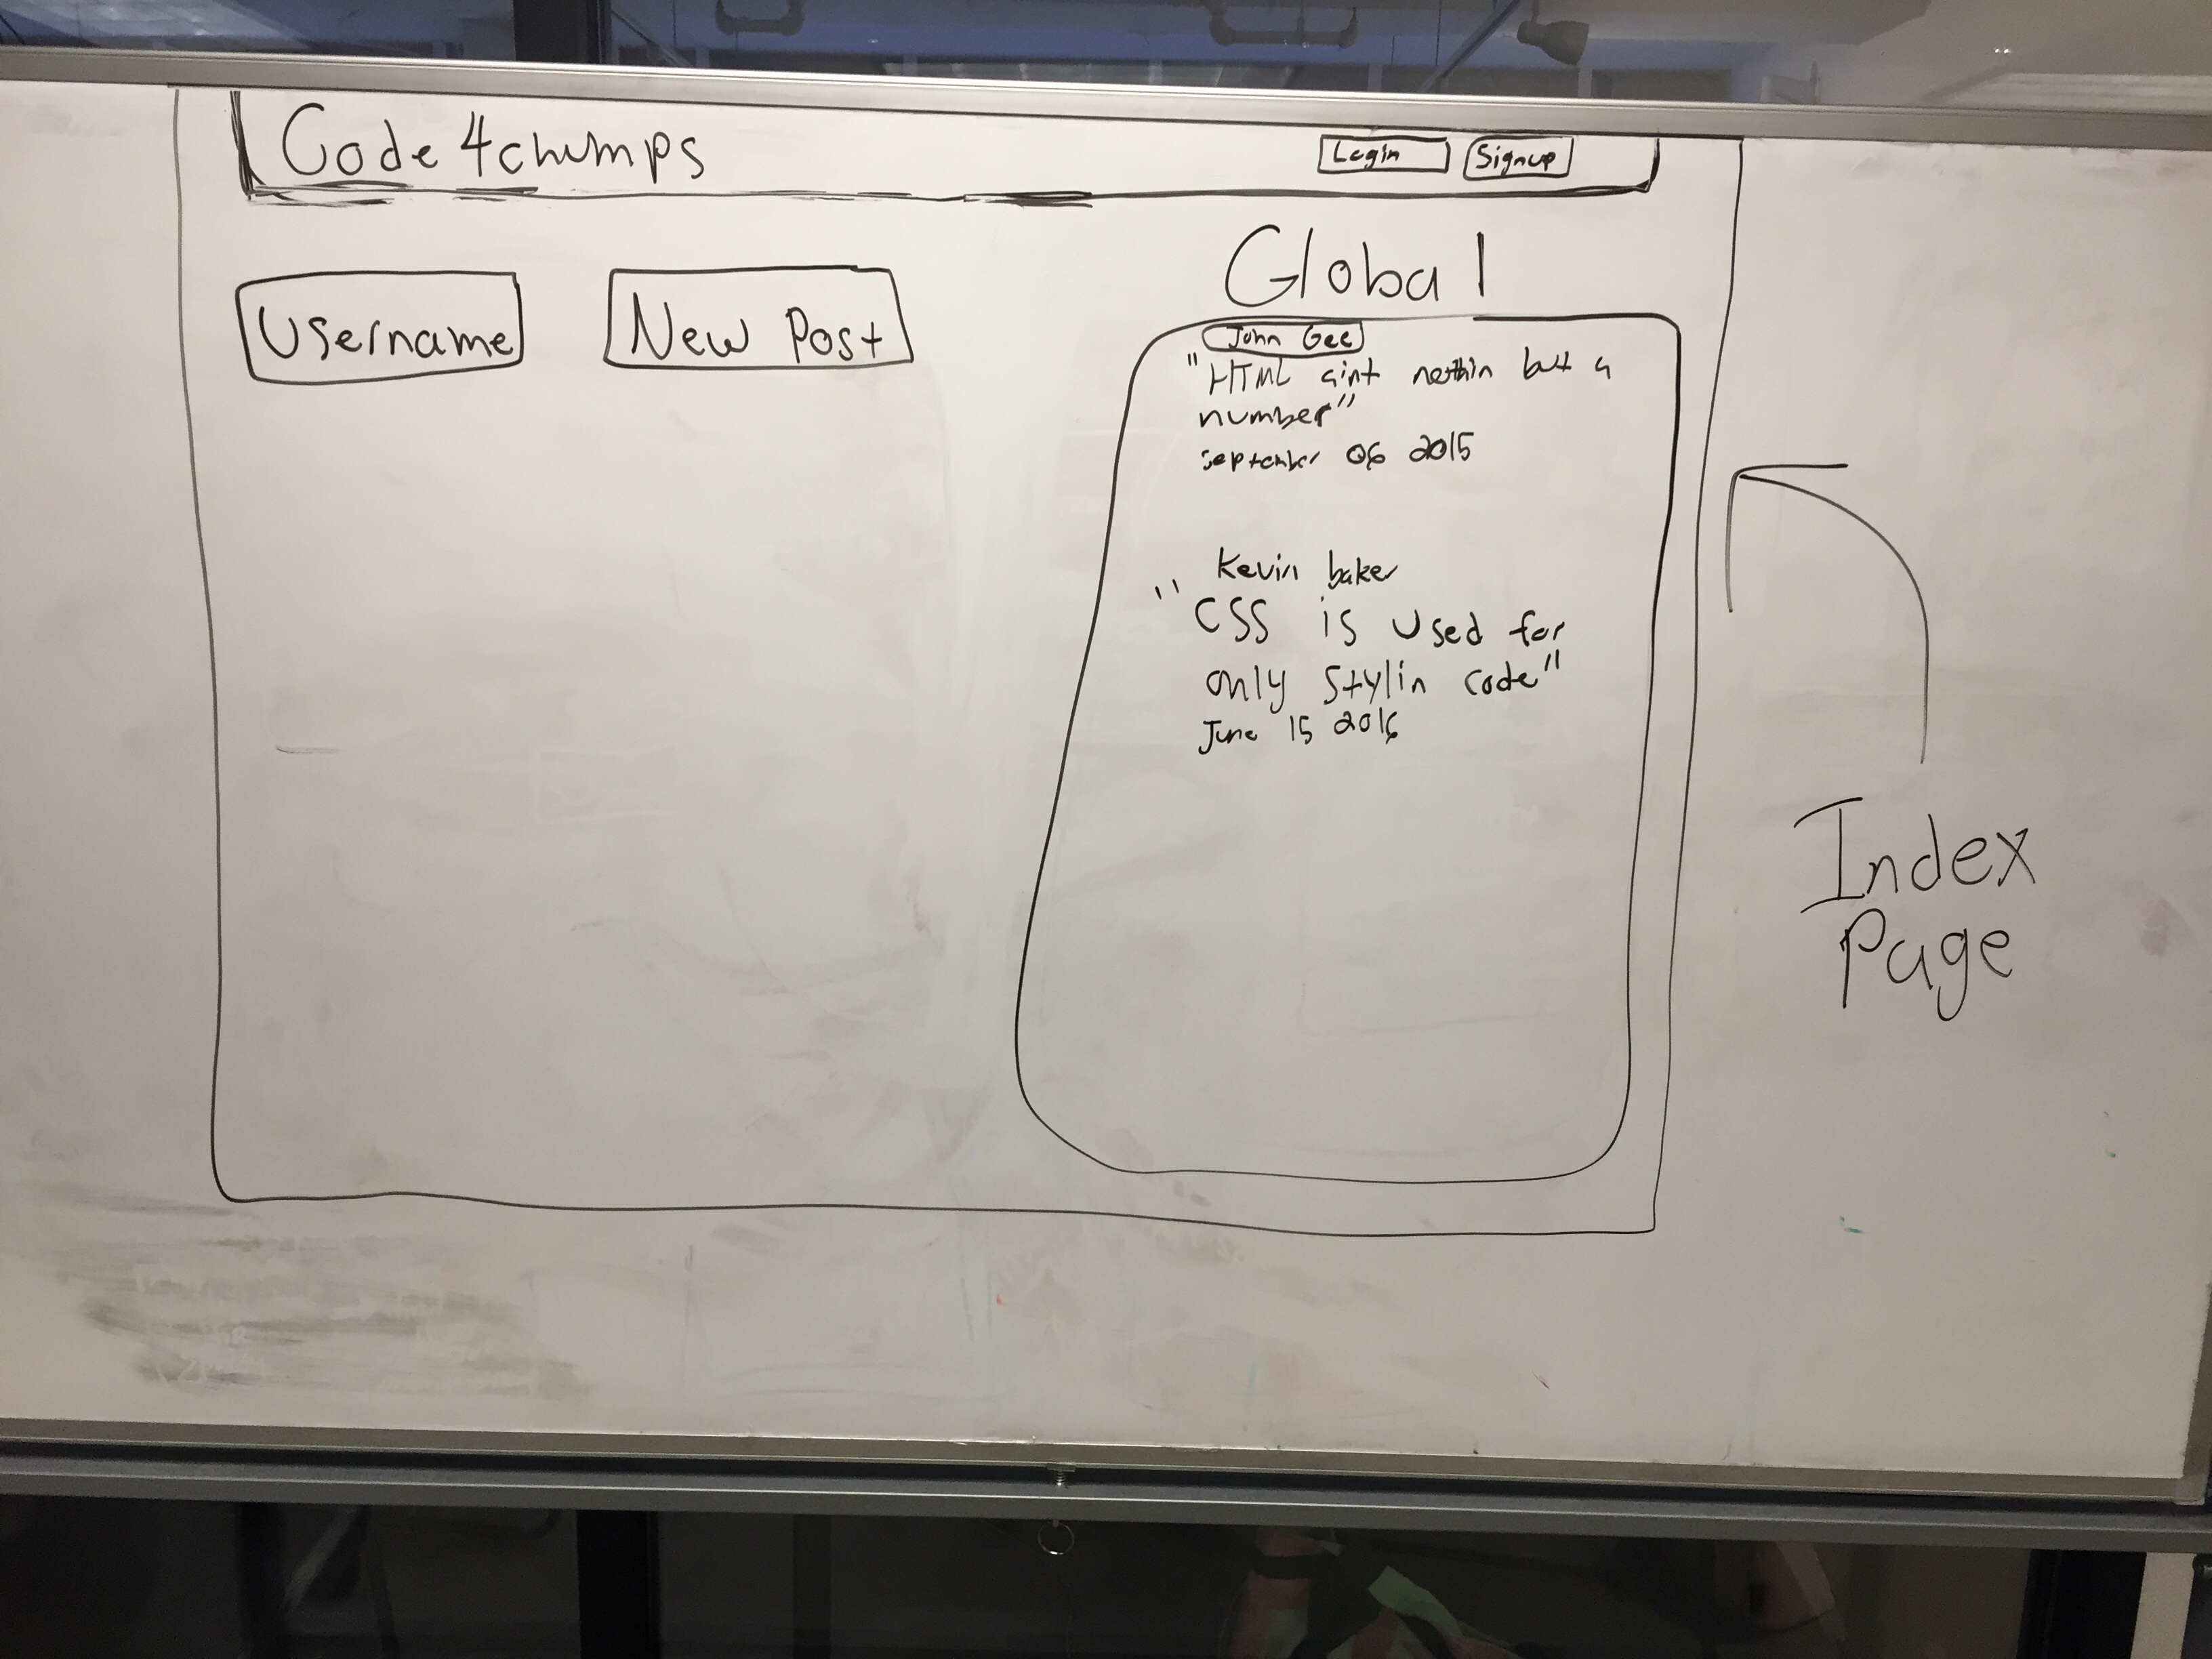 Code4chumps
Login
Signup
Username
New Post
Global
John Gee
"HTML aint nothin but a
number"
september 06 2015
Kevin baker
"CSS is used for
only stylin code"
June 15 2016
Index
Page